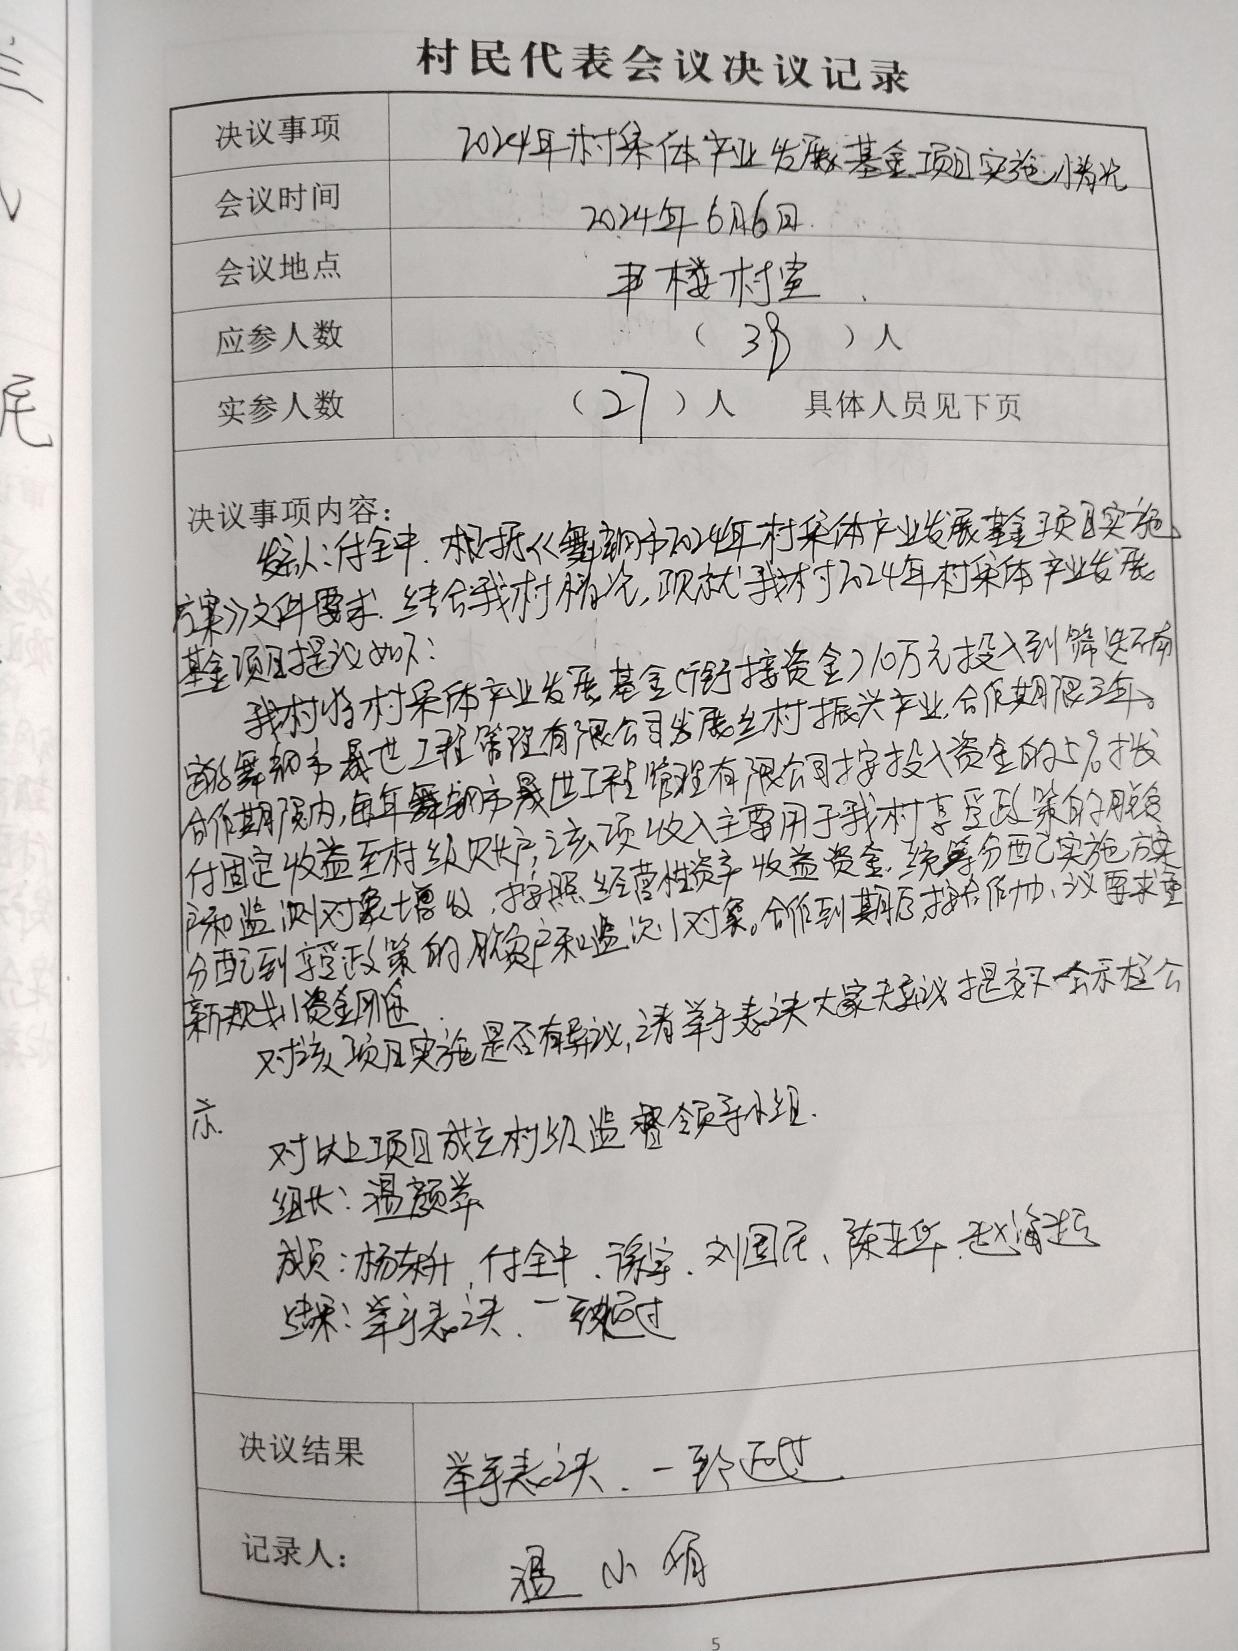 村民代表会议决议记录
决议事项 2024年村集体产业发展基金项目实施情况
会议时间 2024年6月6日
会议地点 楼村室
应参人数 （38）人
实参人数 （27）人 具体人员见下页
决议事项内容：
发言人：付全中．根据《舞钢市2024年村集体产业发展基金项目实施
方案》文件要求．结合我村情况，现就我村2024年村集体产业发展
基金项目提议如下：
我村将村集体产业发展基金（衔接资金）10万元投入到筛选
舞钢市晟世工程管理有限公司发展乡村振兴产业，合作期限三年。
合作期限内，每年舞钢市晟世工程管理有限公司按投入资金的5%拨
付固定收益至村级账户，该项收入主要用于我村享受政策的脱贫
户和监测对象增收，按照经营性资产收益资金．统筹分配实施方案
分配到享受政策的脱贫户和监测对象。合作到期后按合作协议要求重
新规划资金用途．
对该项目实施是否有异议，请举手表决大家无异议提交公示栏公
示．
对以上项目成立村级监督领导小组．
组长：温颜举
成员：杨东升、付全中、徐宇、刘国民、陈来华、赵海超
结果：举手表决、一致通过
决议结果 举手表决、一致通过
记录人： 温小娟
5